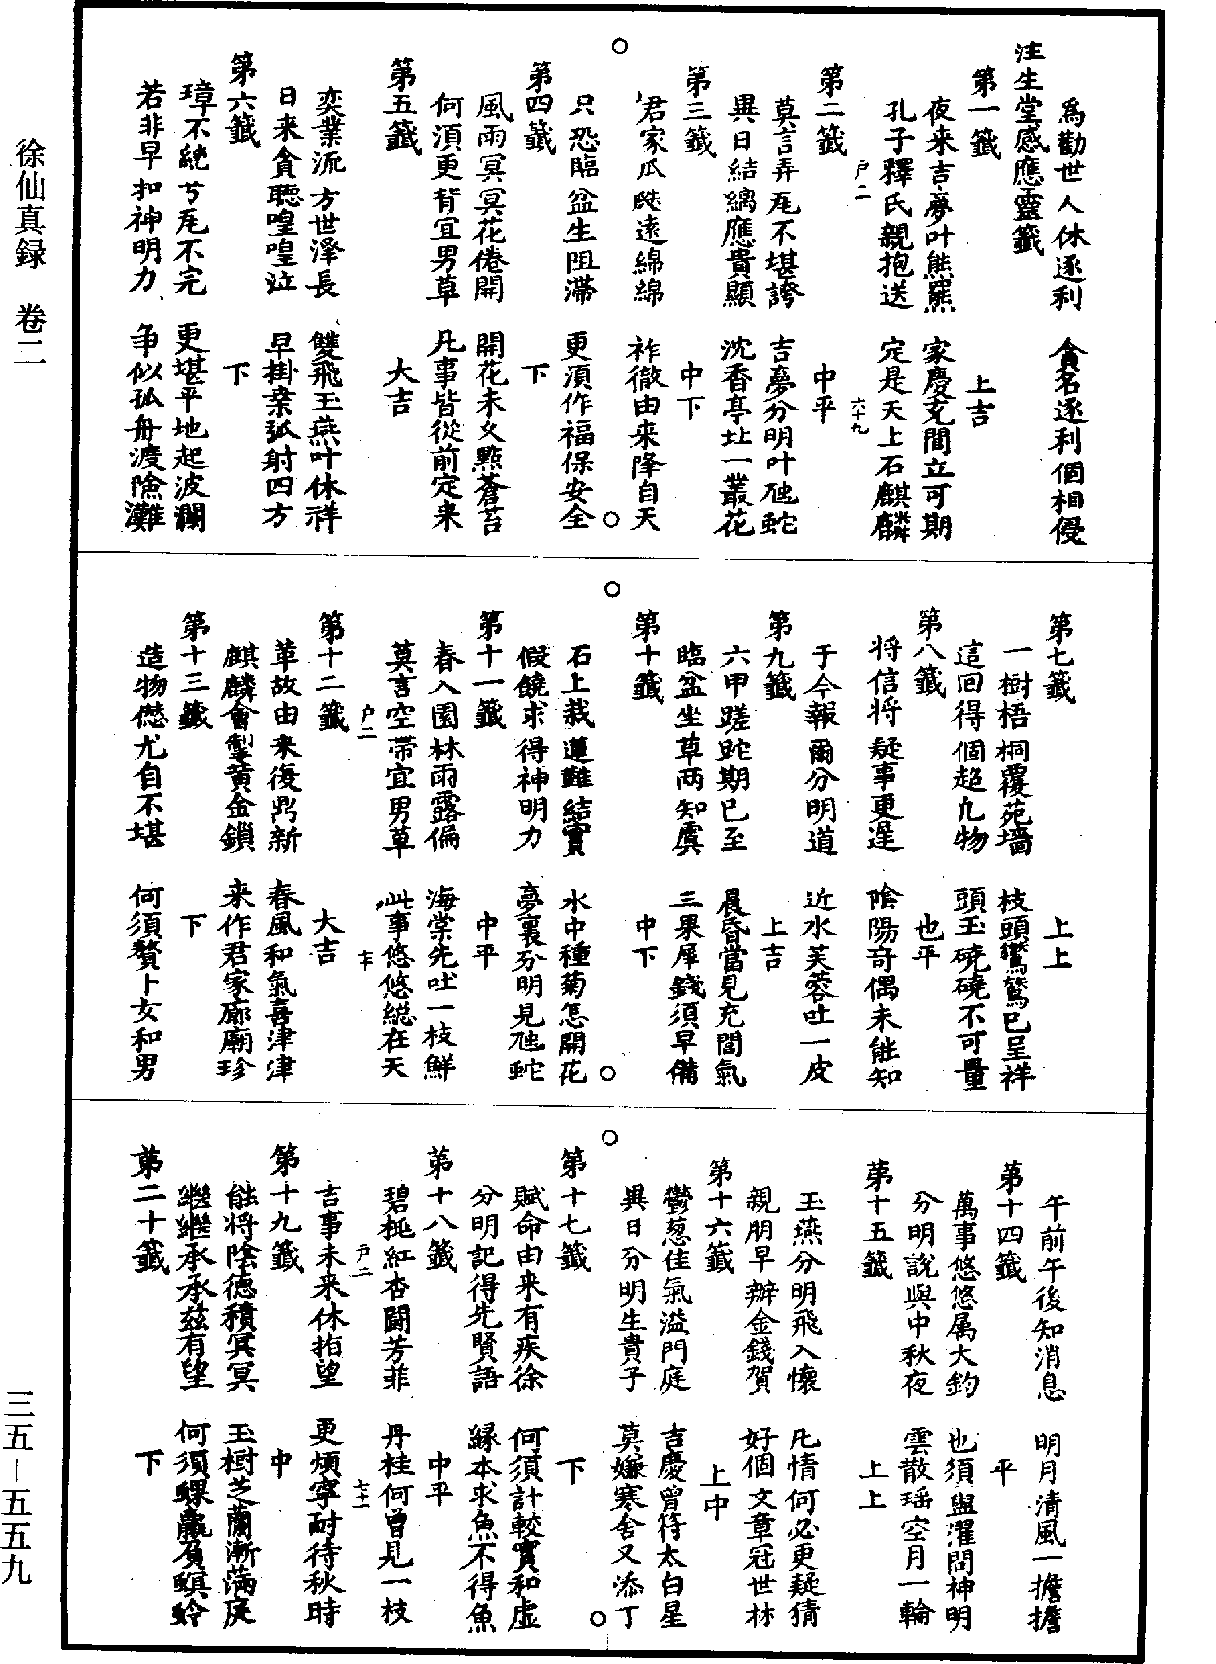 為勸世人休逐利　貪名逐利個相侵
注生堂感應靈籤
第一籤　上吉
夜来吉夢叶熊羆　家慶充閭立可期
孔子釋氏親抱送　定是天上石麒麟
户二　六十九
第二籤　中平
莫言弄瓦不堪誇　吉夢分明叶虺蛇
異日結縭應貴顯　沈香亭北一叢花
第三籤　中下
君家瓜瓞遠綿綿　祚徹由来降自天
只恐臨盆生阻滯　更須作福保安全
第四籤　下
風雨冥冥花倦開　開花未久點蒼苔
何須更背宜男草　凡事皆從前定来
第五籤　大吉
奕業流方世澤長　雙飛玉燕叶休祥
日来貪聽喤喤泣　早掛桑弧射四方
第六籤　下
璋不純兮瓦不完　更堪平地起波瀾
若非早扣神明力　争似孤舟渡險灘
第七籤　上上
一樹梧桐覆苑墻　枝頭鸑鷟已呈祥
這回得個超凡物　頭玉磽磽不可量
第八籤　也平
将信将疑事更遲　陰陽奇偶未能知
于今報爾分明道　近水芙蓉吐一皮
第九籤　上吉
六甲蹉跎期已至　晨昏當見充閭氣
臨盆坐草两知虞　三果犀錢須早備
第十籤　中下
石上栽蓮難結實　水中種菊怎開花
假饒求得神明力　夢裏分明見虺蛇
第十一籤　中平
春入園林雨露偏　海棠先吐一枝鮮
莫言空帶宜男草　此事悠悠總在天
户二　七十
第十二籤　大吉
革故由来復鼎新　春風和氣喜津津
麒麟會掣黄金鎖　来作君家廊廟珍
第十三籤　下
造物愆尤自不堪　何須贅卜女和男
午前午後知消息　明月清風一擔擔
第十四籤　平
萬事悠悠属大鈞　也須盥濯問神明
分明說與中秋夜　雲散瑶空月一輪
第十五籤　上上
玉燕分明飛入懷　凡情何必更疑猜
親朋早辦金錢賀　好個文章冠世材
第十六籤　上中
鬱葱佳氣溢門庭　吉慶曾符太白星
異日分明生貴子　莫嫌寒舍又添丁
第十七籤　下
賦命由来有疾徐　何須計較實和虚
分明記得先賢語　緣本求魚不得魚
第十八籤　中平
碧桃紅杏鬪芳菲　丹桂何曾見一枝
户二　七十一
吉事未来休拍望　更煩寧耐待秋時
第十九籤　中
能将陰德積冥冥　玉樹芝蘭漸滿庭
繼繼承承兹有望　何須蜾蠃負螟蛉
第二十籤　下
徐仙真録　卷二
三五—五五九